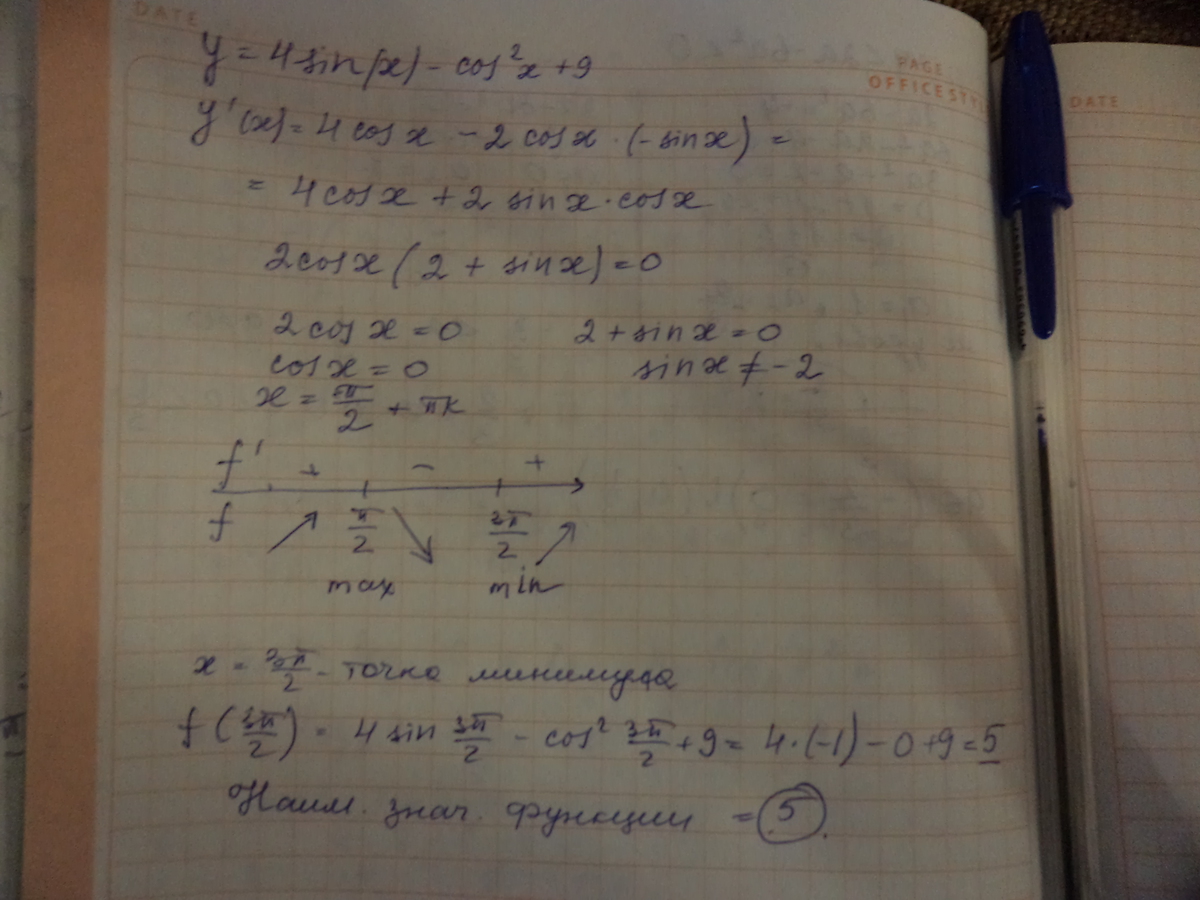 DATE
y = 4 sin(x) - cos²x + 9
PAGE
OFFICE STY
DATE
y'(x) = 4 cos x - 2 cos x · (- sin x) =
= 4 cos x + 2 sin x · cos x
2 cos x ( 2 + sin x) = 0
2 cos x = 0 2 + sin x = 0
cos x = 0 sin x ≠ -2
x = π/2 + πk
f' + - +
f π/2 3π/2
max min
x = 3π/2 - точка минимума
f (3π/2) = 4 sin 3π/2 - cos² 3π/2 + 9 = 4 · (-1) - 0 + 9 = 5
Наим. знач. функции = 5.